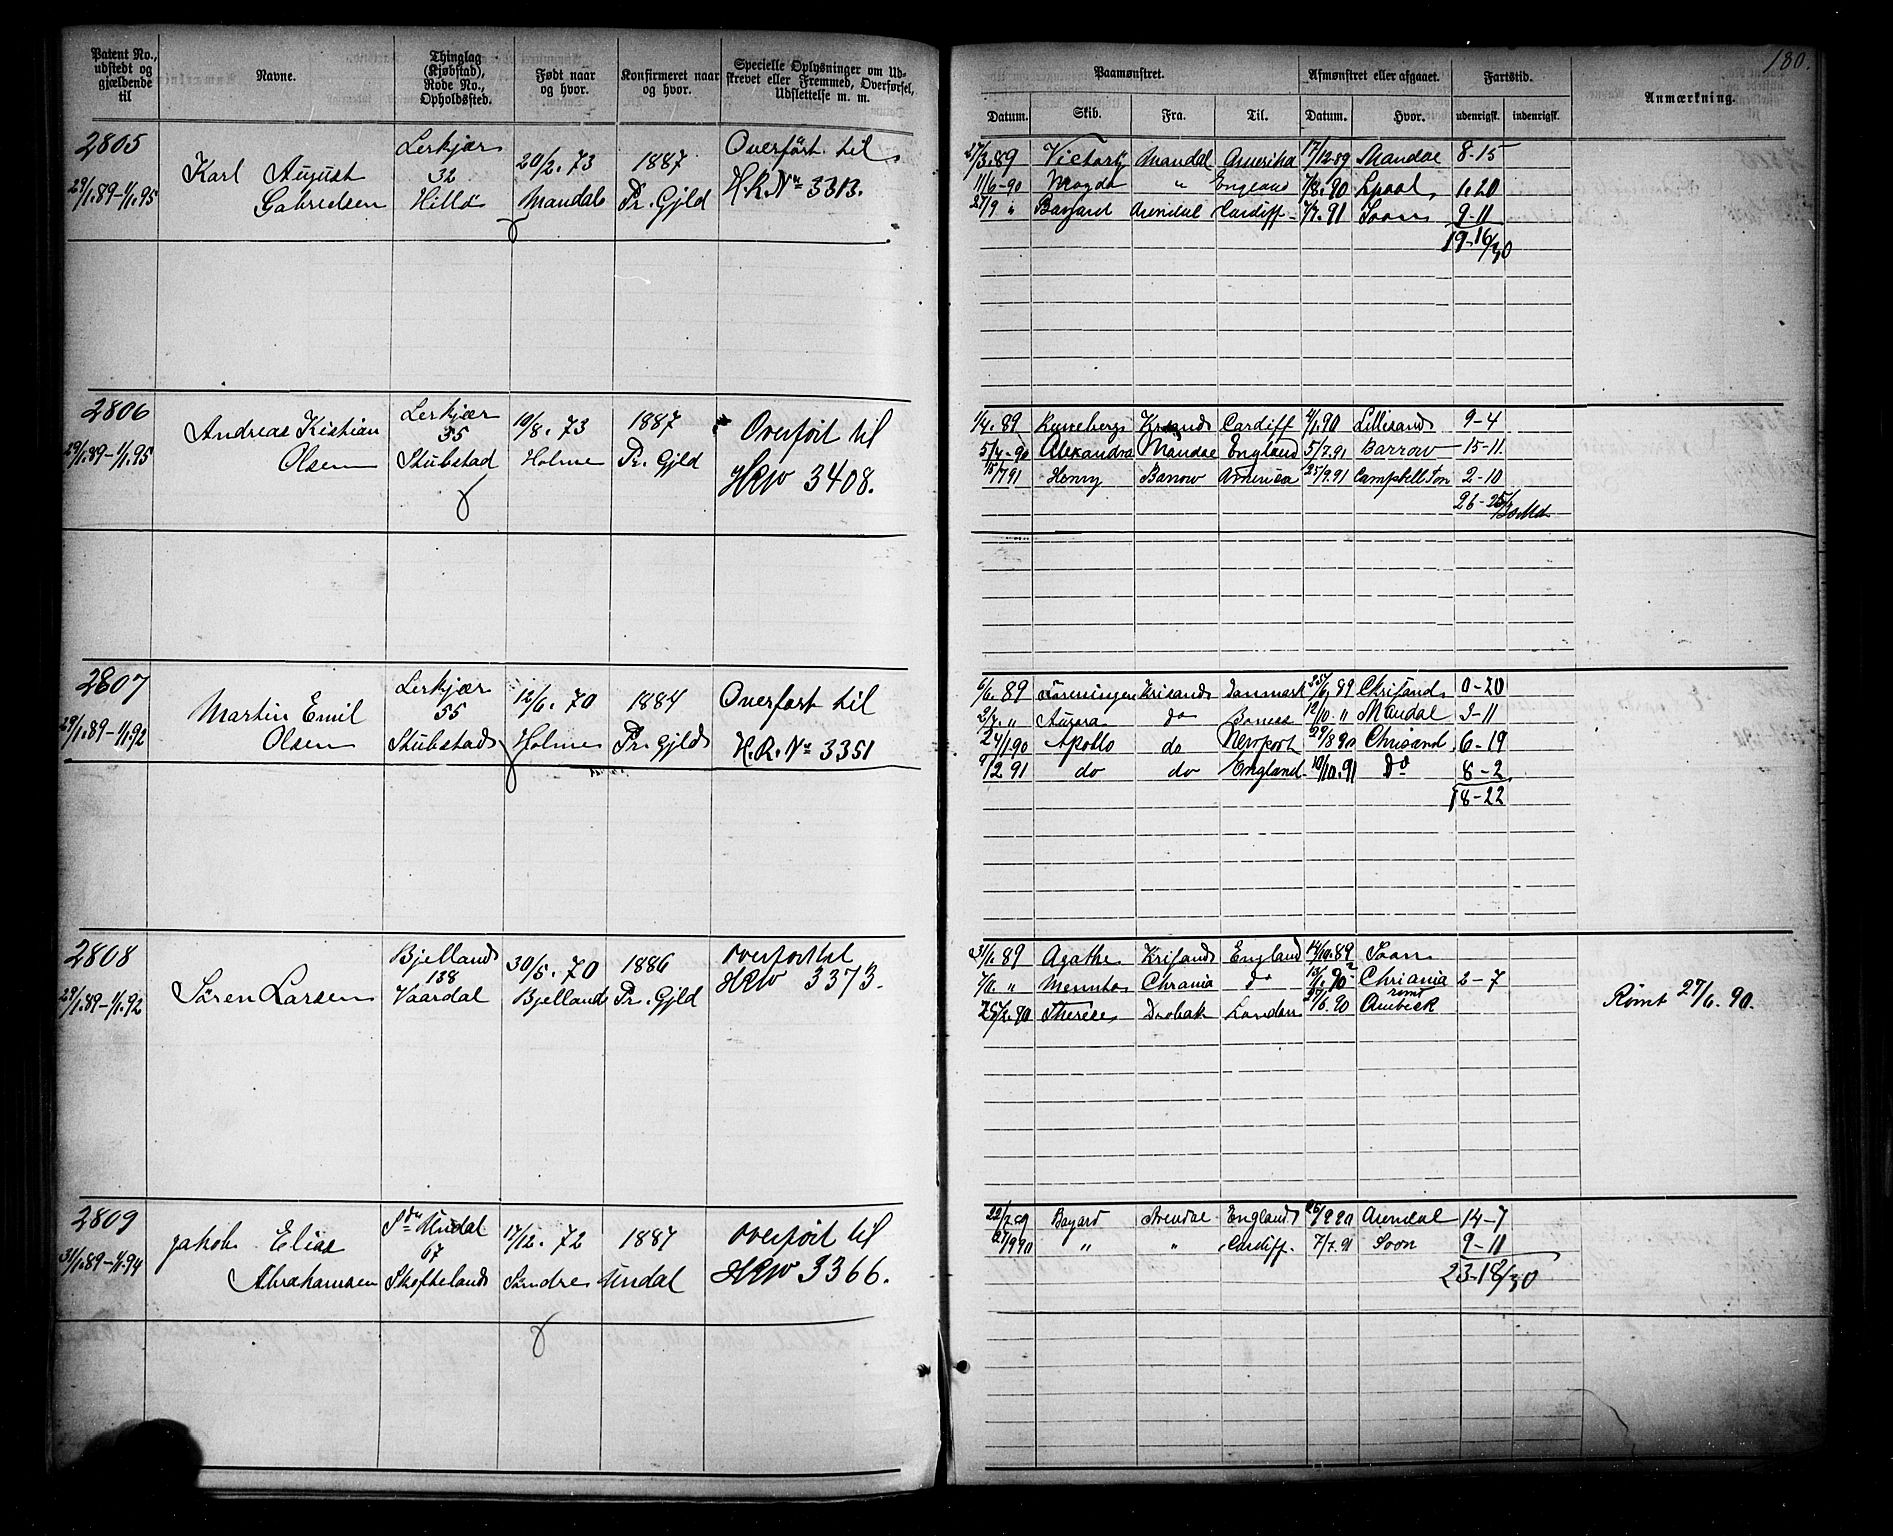 180.
Patent No., udstedt og gjældende til
Navne.
Thinglag (Kjøbstad), Rode No., Opholdssted.
Født naar og hvor.
Konfirmeret naar og hvor.
Specielle Oplysninger om Udskrevet eller Fremmed, Overførsel, Udslettelse m. m.
Paamønstret.
Afmønstret eller afgaaet.
Fartstid.
Anmærkning.
Datum. Skib. Fra. Til. Datum. Hvor. udenrigsk. indenrigsk.
2805
29/1.89-1/1.95
Karl August
Gabrielsen
Lerkjær
32
Hillö
20/2.73
Mandal
1887
Pr. Gjld
Overført til
H.R.No 3313.
27/3.89 Victoria Mandal Amerika 17/12.89 Mandal 8-15
11/6-90 Magda " England 7/8.90 1.20
27/9 " Bayard Arendal Cardiff 7/7.91 Soon 9-11
19-16/30
2806
29/1.89-1/1.95
Andreas Kistian
Olsen
Lerkjær
35
Stubstad
10/8.73
Holme
1887
Pr. Gjld
Overført til
HRNo 3408.
1/4.89 Krsand Cardiff 4/1.90 Lillisand 9-4
5/4-90 Alexandra Mandal England 5/7.91 Barrow 15-11
15/7 91 Henry Barrow America 25/9.91 Campbellton 2-10
26-25/30 Md
2807
29/1.89-1/1.92
Martin Emil
Olsen
Lerkjær
55
Stubstad
12/6.70
Holme
1884
Pr. Gjld
Overført til
H.R.No 3351
6/6.89 Foreningen Krisand Danmark 25/6 89 Chrisand 0-20
2/7. " Aurora do Boness 12/10. " Mandal 3-11
24/1 90 Apollo do Newport 29/8 90 Chrisand 6-19
9/2 91 do do England 10/10.91 Do 8-2
18-22
2808
29/1.89-1/1.92
Søren Larsen
Bjelland
138
Vaardal
30/5.70
Bjelland
1886
Pr. Gjld
Overført til
HRNo 3373.
31/1.89 Agathe Krisand England 14/10.89 Soon
" Chrania Do Chriania 2-7
90 Therese Drobak London 27/6.90 rømt
Rømt 27/6.90.
2809
31/1.89-1/1.94
Jakob Elias
Abrahamsen
Sdre Undal
67
Skofteland
17/12.72
Søndre Undal
1887
Overført til
HRNo 3366.
22/2 89 Bayard Arendal England Arendal 14-7
27/9 90 " " Cardiff. 7/7.91 Soon 9-11
23-18/30